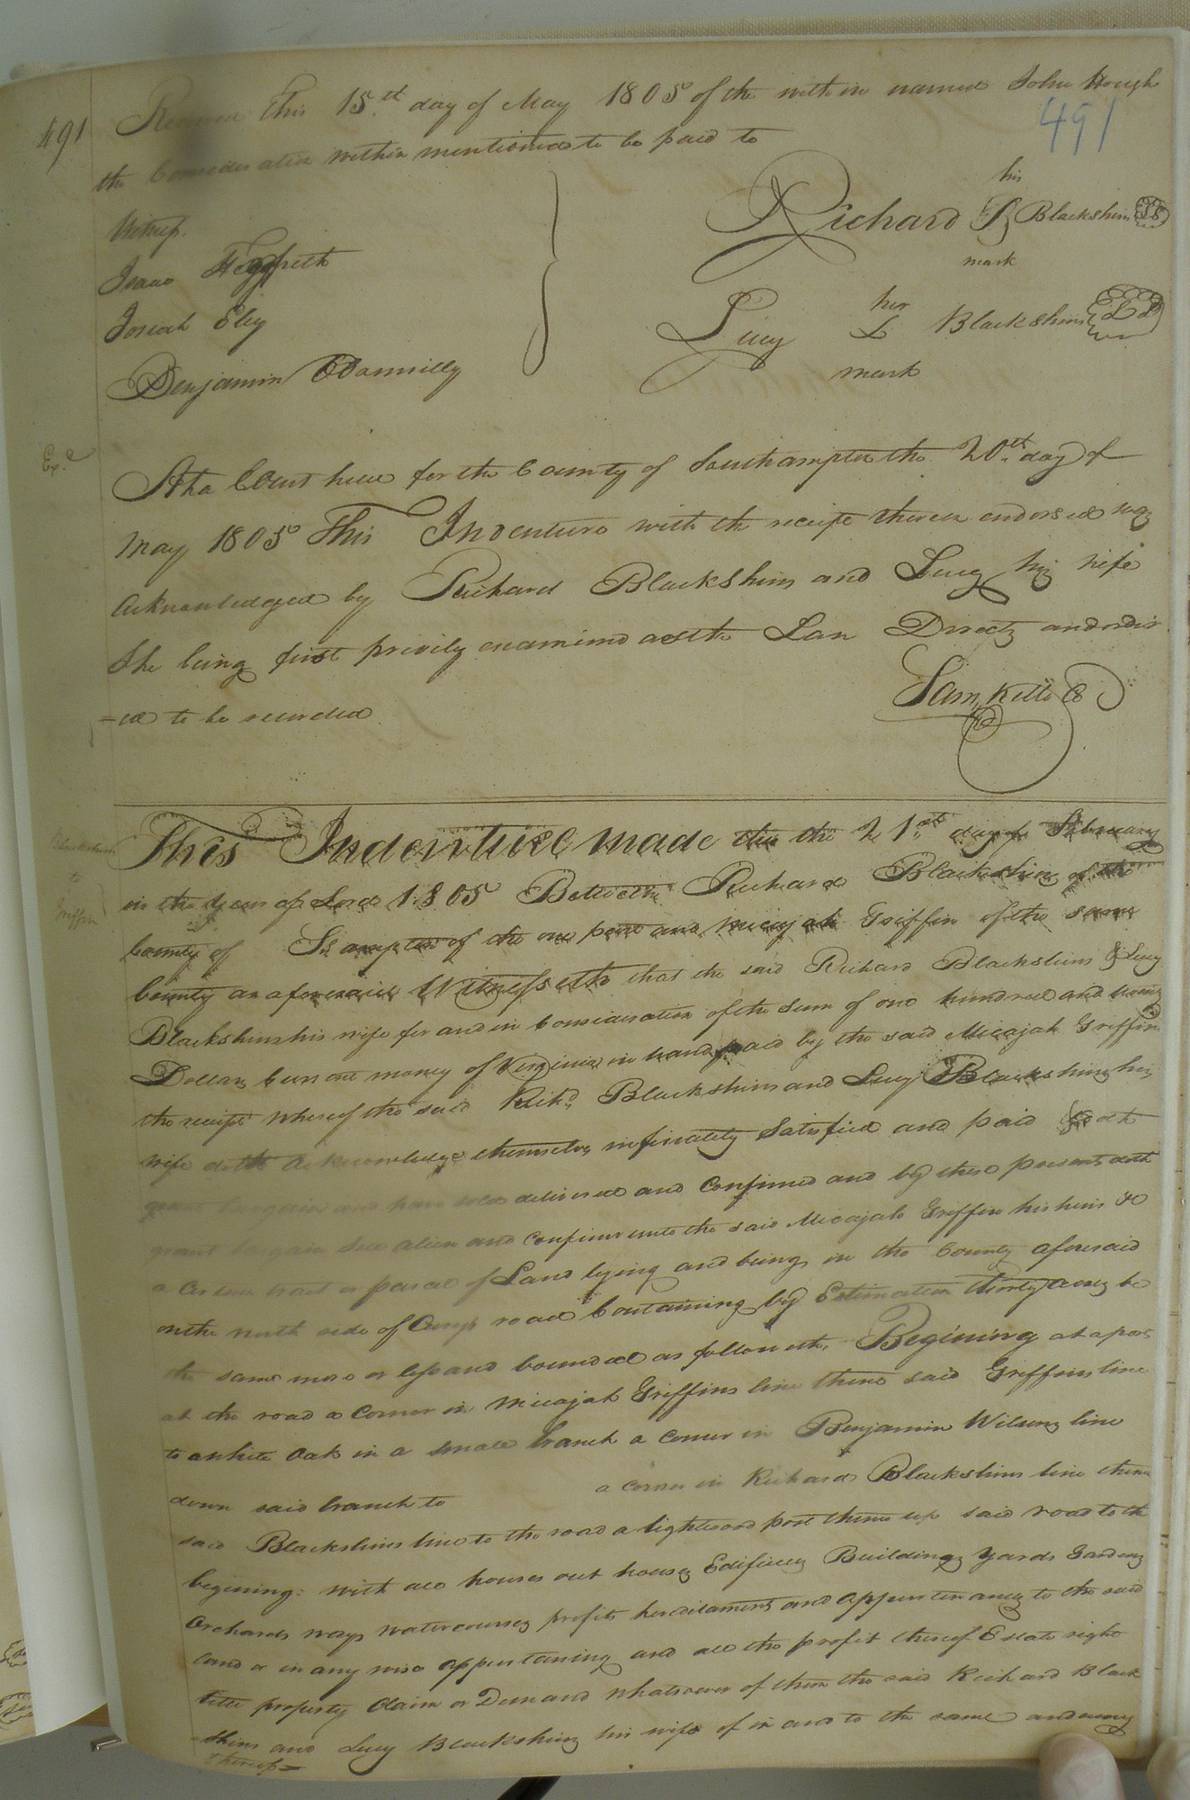 491
Received this 15th day of May 1805 of the within named John Hough
491
the Consideration within mentioned to be paid to
Witness
his
Richard B Blackshins LS
mark
Isaac
Josiah Eley
Benjamin ODonnilly
her
Lucy L Blackshins LS
mark
Exd
At a Court held for the County of Southampton the 20th day of
May 1805 This Indenture with the receipt thereon endorsed was
acknowledged by Richard Blackshins and Lucy his wife
She being first privily examined as the Law Directs and order
=ed to be recorded
Saml Kello C
Blackshins
to
Griffin
This Indenture made this the 21st day of February
in the year of Lord 1805 Between Richard Blackshins of the
County of Southampton of the one part and Micajah Griffin of the same
County as aforesaid Witnesseth that the said Richard Blackshins & Lucy
Blackshins his wife for and in Consideration of the sum of one hundred and twenty
Dollars Current money of Virginia in hand paid by the said Micajah Griffin
the receipt whereof the said Richd Blackshins and Lucy Blackshins his
wife doth acknowledge themselves Satisfied and paid doth
grant bargain and have sold delivered and Confirmed and by these presents doth
grant bargain Sell alien and Confirm unto the said Micajah Griffin his heirs &c
a Certain tract or parcel of Land lying and being in the County aforesaid
on the north side of road Containing by Estimation thirty acres be
the same more or less and bounded as followeth, Begining at a post
at the road a Corner in Micajah Griffins line thence said Griffins line
to a white Oak in a Small branch a Corner in Benjamin Wilsons line
down said branch to a corner in Richard Blackshins line thence
said Blackshins line to the road a lightwood post thence up said road to the
begining: with all houses out houses Edifices Buildings yards Gardens
Orchards ways watercourses profits heredilaments and appurtenances to the said
land or in any wise appertaining and all the profit thereof Estate right
title property Claim or Demand whatsoever of them the said Richard Black
=shins and Lucy Blackshins his wife of in and to the same and every
thereof=